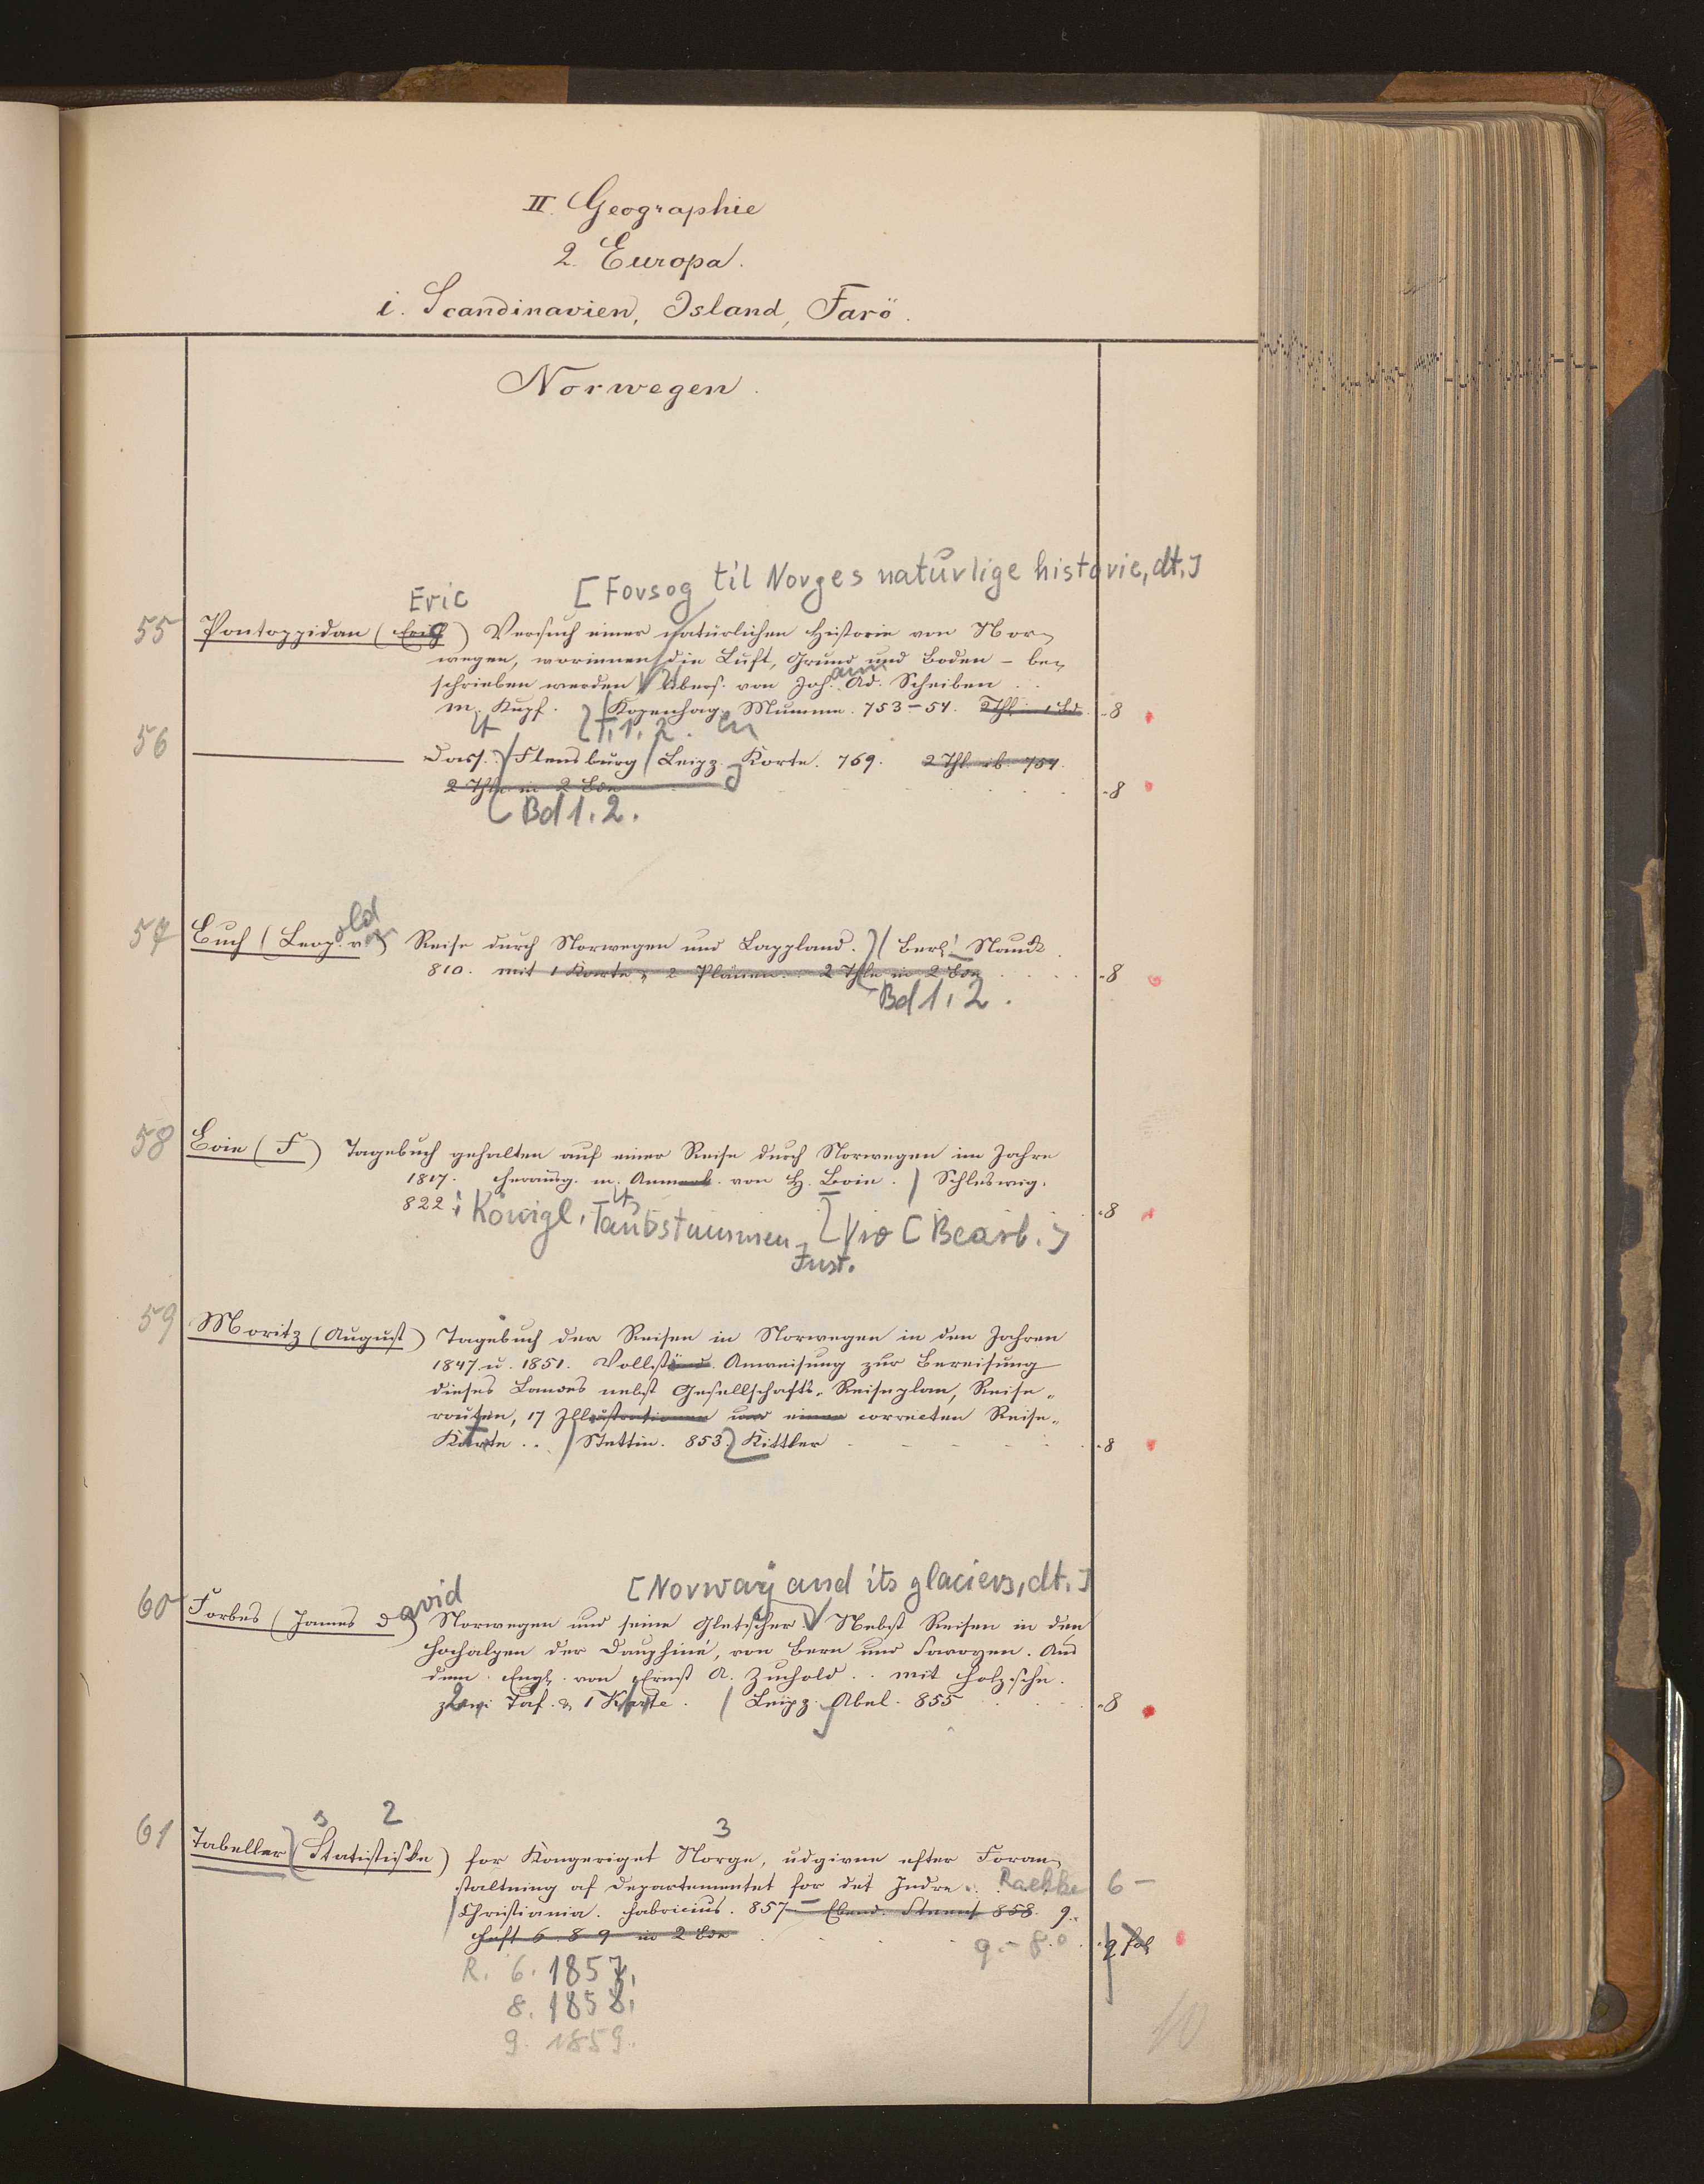 II. Geographie
2. Europa.
i. Scandinavien, Island, Farö.
Norwegen.
Eric [Forsog til Norges naturlige historie, dt.]
55 Pontoppidan (Erich) Versuch einer natürlichen Historie von Nor-
wegen, worinnen die Luft, Grund und Boden - be-
schrieben werden Übers. von Joh.ann Ad. Scheiben
m. Kupf. Kopenhag. Mumme. 753-54. 2 Thl. 1 Bd. -8
T. 1. 2.
56 Dass. Flensburg Leipz. Korte. 769. 2 Thl. ib. 754.
2 Thle in 2 Bde -8
Bd 1. 2.
57 Buch (Leop.old von) Reise durch Norwegen und Lappland. Berl. Nauck.
810. mit 1 Karte, 2 Plänen. 2 Thle in 2 Bde -8
Bd 1. 2.
58 Boie (F) Tagebuch gehalten auf einer Reise durch Norwegen im Jahre
1817. herausg. m. Anmerk. von H. Boie. Schleswig.
822: Königl. Taubstummen- [Bearb.] -8
Inst.
59 Moritz (August) Tagebuch der Reisen in Norwegen in den Jahren
1847 u. 1851. Vollständ. Anweisung zur Bereisung
dieses Landes nebst Gesellschafts-Reiseplan, Reise-
routen, 17 Illustrationen und einer correcten Reise-
Karte .. Stettin. 853. Kittler -8
[Norway and its glaciers, dt.]
60 Forbes (James David) Norwegen und seine Gletscher. Nebst Reisen in den
Hochalpen der Dauphiné, von Bern und Savoyen. Aus
dem Engl. von Ernst A. Zuchold .. mit Holzschn.
zwei 2 Taf. & 1 Karte. Leipz. Abel. 855 -8
2 3
61 Tabeller (Statistiske) for Kongeriget Norge, udgivne efter Foran-
staltning af Departementet for det Indre .. Raekke 6 -
Christiania. Fabricius. 857 - Ebend. Steensk 858. 9.
Heft 6. 8. 9 in 2 Bde 9. - 8.° fol
R. 6. 1857,
8. 1858,
9. 1859.
10